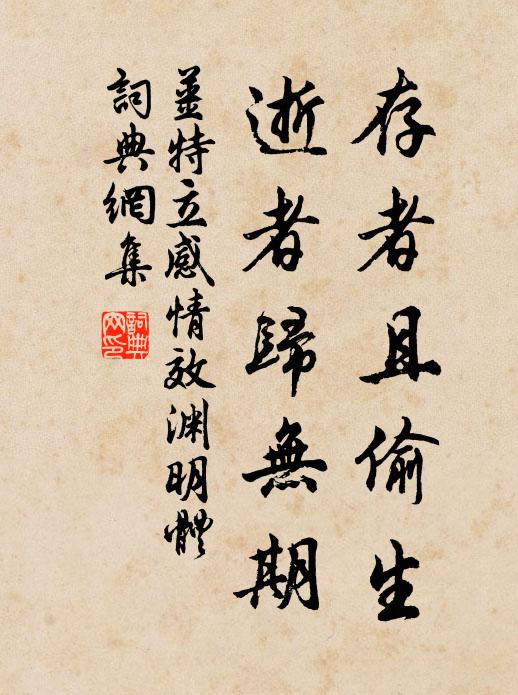 存者且偷生
逝者歸無期
姜特立感情效淵明體
詞典網集
詞典網印